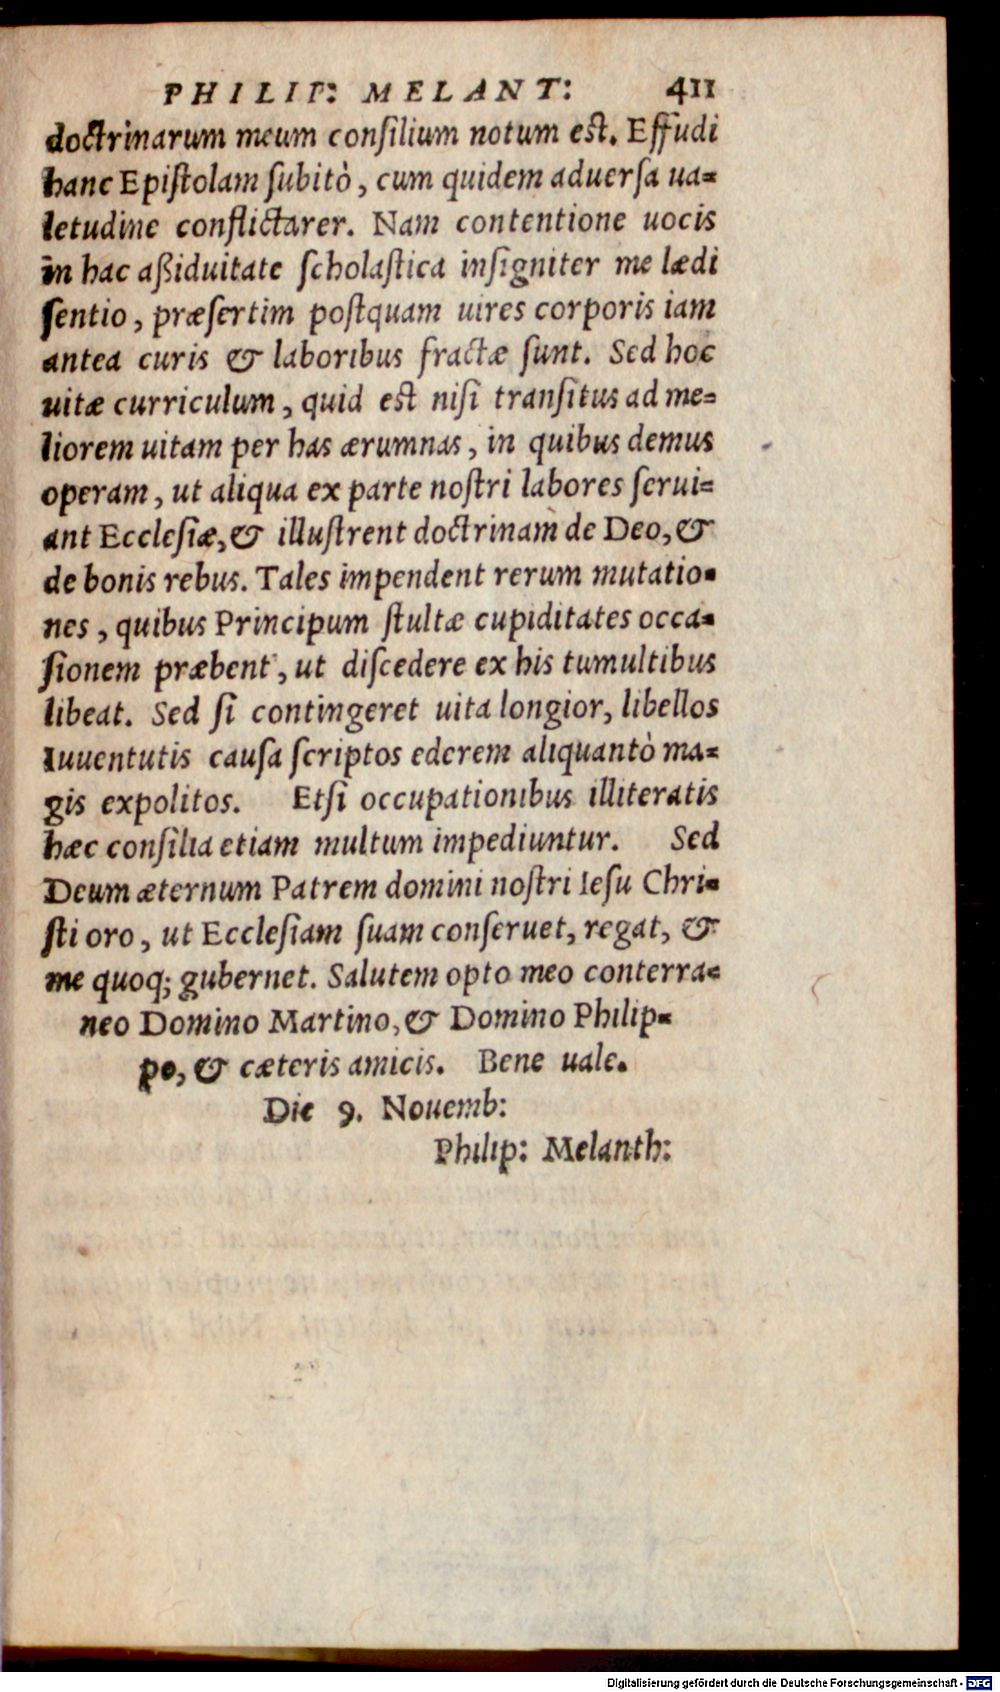 PHILIP: MELANT: 411
doctrinarum meum conſilium notum eſt. Effudi
hanc Epiſtolam ſubitò, cum quidem aduerſa ua-
letudine conflictarer. Nam contentione uocis
in hac aßiduitate ſcholaſtica inſigniter me lædi
ſentio, præſertim poſtquam uires corporis iam
antea curis & laboribus fractæ ſunt. Sed hoc
uitæ curriculum, quid eſt niſi tranſitus ad me-
liorem uitam per has ærumnas, in quibus demus
operam, ut aliqua ex parte noſtri labores ſerui-
ant Eccleſiæ, & illuſtrent doctrinam de Deo, &
de bonis rebus. Tales impendent rerum mutatio-
nes, quibus Principum ſtultæ cupiditates occa-
ſionem præbent, ut diſcedere ex his tumultibus
libeat. Sed ſi contingeret uita longior, libellos
Iuuentutis cauſa ſcriptos ederem aliquantò ma-
gis expolitos. Etſi occupationibus illiteratis
hæc conſilia etiam multum impediuntur. Sed
Deum æternum Patrem domini noſtri Ieſu Chri-
ſti oro, ut Eccleſiam ſuam conſeruet, regat, &
me quoq; gubernet. Salutem opto meo conterra-
neo Domino Martino, & Domino Philip-
po, & cæteris amicis. Bene uale.
Die 9. Nouemb:
Philip: Melanth:
Digitalisierung gefördert durch die Deutsche Forschungsgemeinschaft - DFG